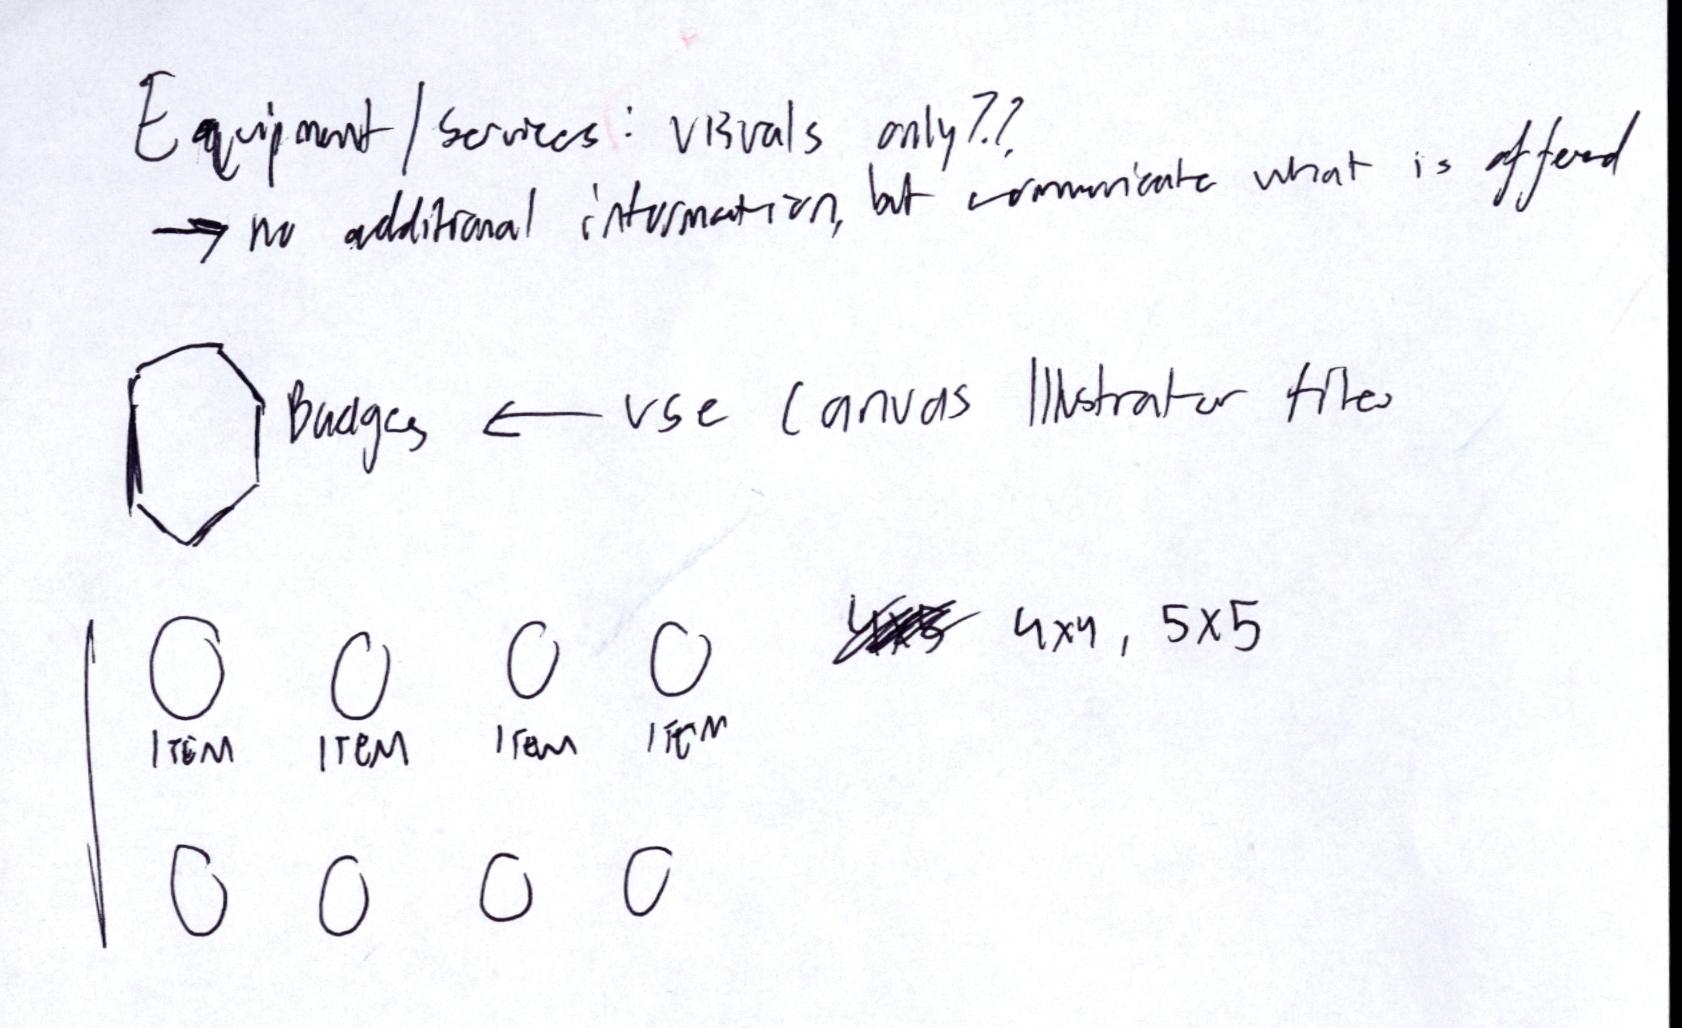 Equipment/services: visuals only??
→ no additional information, but communicate what is offered
Badges ← use Canvas Illustrator files
4x4, 5x5
ITEM ITEM ITEM ITEM